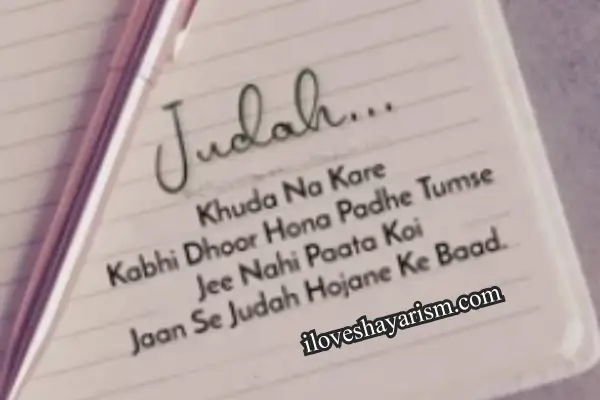 Judah...
Khuda Na Kare
Kabhi Dhoor Hona Padhe Tumse
Jee Nahi Paata Koi
Jaan Se Judah Hojane Ke Baad.
iloveshayarism.com